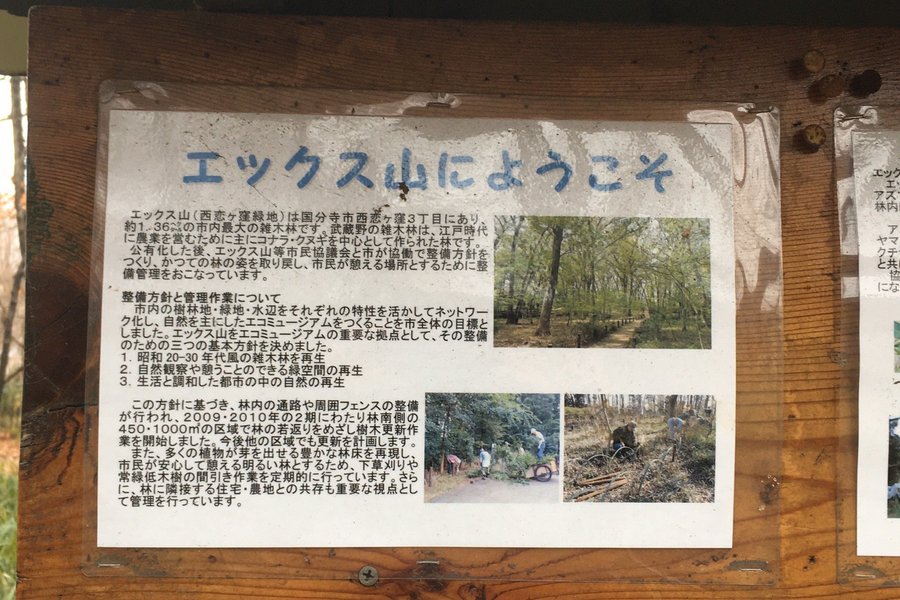 エックス山にようこそ
エックス山(西恋ヶ窪緑地)は国分寺市西恋ヶ窪3丁目にあり、
約1.36㌶の市内最大の雑木林です。武蔵野の雑木林は、江戸時代
に農業を営むために主にコナラ・クヌギを中心として作られた林です。
公有化した後、エックス山等市民協議会と市が協働で整備方針を
つくり、かつての林の姿を取り戻し、市民が憩える場所とするために整
備管理をおこなっています。
整備方針と管理作業について
市内の樹林地・緑地・水辺をそれぞれの特性を活かしてネットワー
ク化し、自然を主にしたエコミュージアムをつくることを市全体の目標と
しました。エックス山をエコミュージアムの重要な拠点として、その整備
のための三つの基本方針を決めました。
1. 昭和20-30年代風の雑木林を再生
2. 自然観察や憩うことのできる緑空間の再生
3. 生活と調和した都市の中の自然の再生
この方針に基づき、林内の通路や周囲フェンスの整備
が行われ、2009・2010年の2期にわたり林南側の
450・1000㎡の区域で林の若返りをめざし樹木更新作
業を開始しました。今後他の区域でも更新を計画します。
また、多くの植物が芽を出せる豊かな林床を再現し、
市民が安心して憩える明るい林とするため、下草刈りや
常緑低木樹の間引き作業を定期的に行っています。さら
に、林に隣接する住宅・農地との共存も重要な視点とし
て管理を行っています。
エッ
アズ
林内
ア
ヤマ
クチ
と共
にな